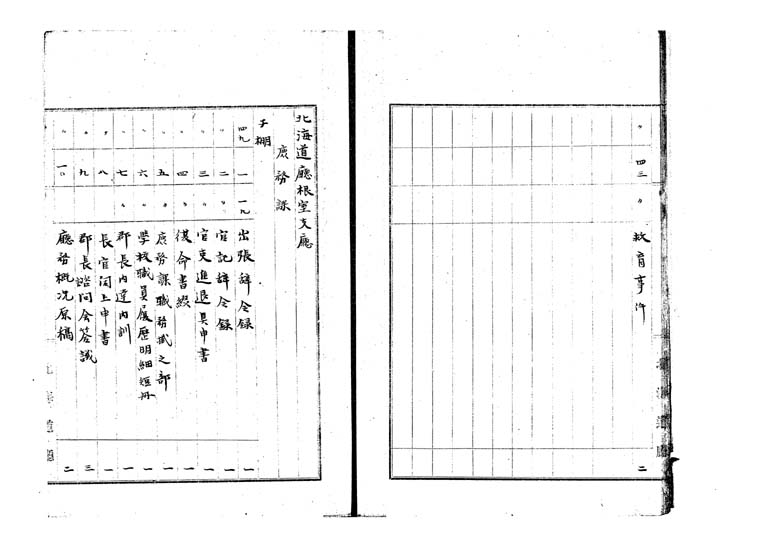 〃 四三 〃 教育事件 二
北海道廳根室支廳
庶務課
子棚
四九 一 一九 出張辞令録 一
〃 二 〃 官記辞令録 一
〃 三 〃 官吏進退具申書 一
〃 四 〃 復命書綴 一
〃 五 〃 庶務課職務拭之部 一
〃 六 〃 学校職員履歴明細短冊 一
〃 七 〃 郡長内達内訓 一
〃 八 長官閉上申書 一
〃 九 郡長諮問会答議 三
〃 一〇 廳務概況原稿 二
北海道廳